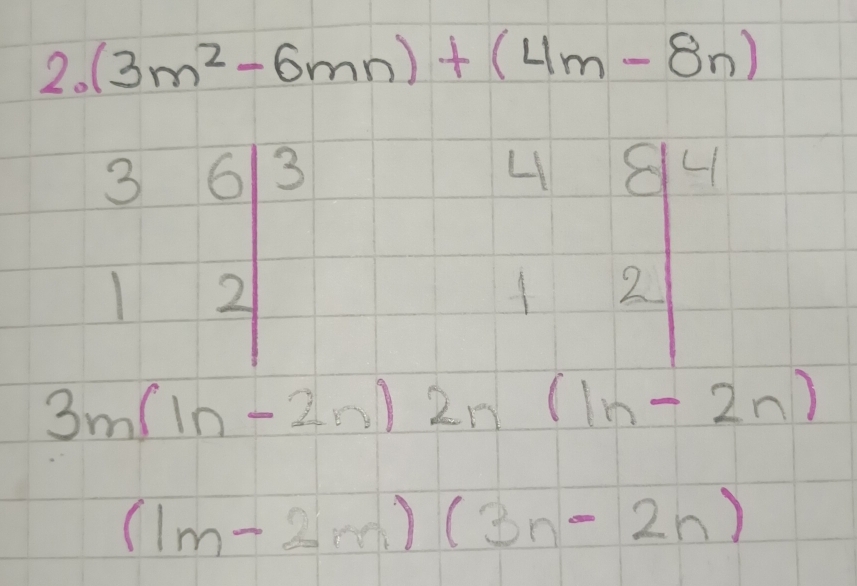 2.(3m² - 6mn) + (4m - 8n)
3 6 | 3 4 8 | 4
1 2 | 1 2 |
3m(1n - 2n) 2n (1n - 2n)
(1m - 2m) (3n - 2n)